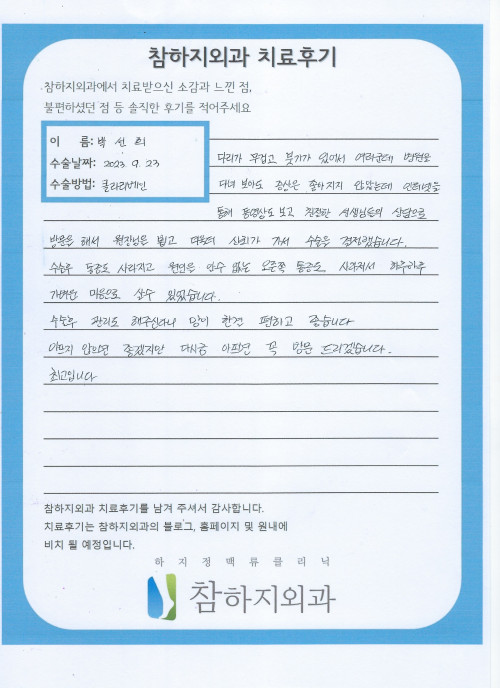 참하지외과 치료후기
참하지외과에서 치료받으신 소감과 느낀 점,
불편하셨던 점 등 솔직한 후기를 적어주세요
이 름: 박 선 희
수술날짜: 2023. 9. 23
수술방법: 클라리베인
다리가 무겁고 붓기가 있어서 여러군데 병원을
다녀 보아도 증상은 좋아지지 않았는데 인터넷을
통해 동영상도 보고 친절한 선생님들의 상담으로
방문을 해서 원장님을 뵙고 더욕더 신뢰가 가서 수술을 결정했습니다.
수술후 통증도 사라지고 원인을 알수 없는 오른쪽 통증도 사라져서 하루하루
가벼운 마음으로 살수 있었습니다.
수술후 관리도 해주신다니 맘이 한결 편하고 좋습니다
아프지 않으면 좋겠지만 다시금 아프면 꼭 방문 드리겠습니다.
최고입니다
참하지외과 치료후기를 남겨 주셔서 감사합니다.
치료후기는 참하지외과의 블로그, 홈페이지 및 원내에
비치 될 예정입니다.
하지정맥류클리닉
참하지외과